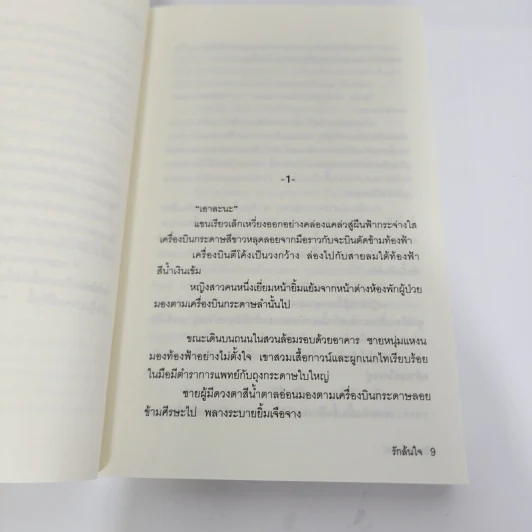 -1-
"เอาละนะ"
แขนเรียวเล็กเหวี่ยงออกอย่างคล่องแคล่วสู่ผืนฟ้ากระจ่างใส
เครื่องบินกระดาษสีขาวหลุดลอยจากมือราวกับจะบินตัดข้ามท้องฟ้า
เครื่องบินตีโค้งเป็นวงกว้าง ล่องไปกับสายลมใต้ท้องฟ้า
สีน้ำเงินเข้ม
หญิงสาวคนหนึ่งเยี่ยมหน้ายิ้มแย้มจากหน้าต่างห้องพักผู้ป่วย
มองตามเครื่องบินกระดาษลำนั้นไป
ขณะเดินบนถนนในสวนล้อมรอบด้วยอาคาร ชายหนุ่มแหงน
มองท้องฟ้าอย่างไม่ตั้งใจ เขาสวมเสื้อกาวน์และผูกเนกไทเรียบร้อย
ในมือมีตำราการแพทย์กับถุงกระดาษใบใหญ่
ชายผู้มีดวงตาสีน้ำตาลอ่อนมองตามเครื่องบินกระดาษลอย
ข้ามศีรษะไป พลางระบายยิ้มเจือจาง
รักล้นใจ 9